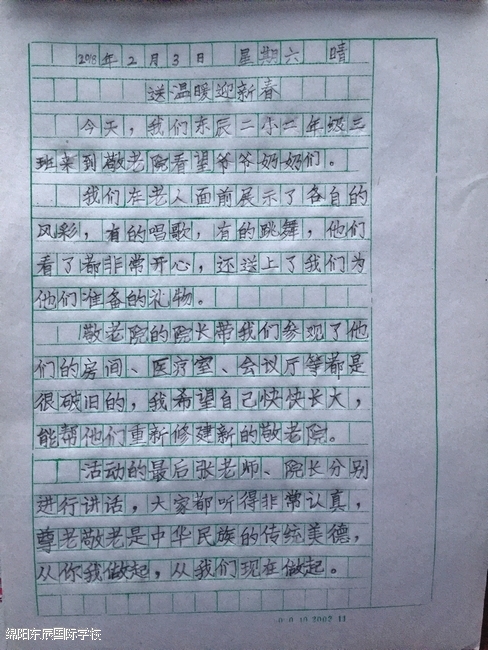 2018年2月3日 星期六 晴
送温暖迎新春
今天，我们东辰二小二年级三
班来到敬老院看望爷爷奶奶们。
我们在老人面前展示了各自的
风彩，有的唱歌，有的跳舞，他们
看了都非常开心，还送上了我们为
他们准备的礼物。
敬老院的院长带我们参观了他
们的房间、医疗室、会议厅等都是
很破旧的，我希望自己快快长大，
能帮他们重新修建新的敬老院。
活动的最后张老师、院长分别
进行讲话，大家都听得非常认真，
尊老敬老是中华民族的传统美德，
从你我做起，从我们现在做起。
绵阳东辰国际学校